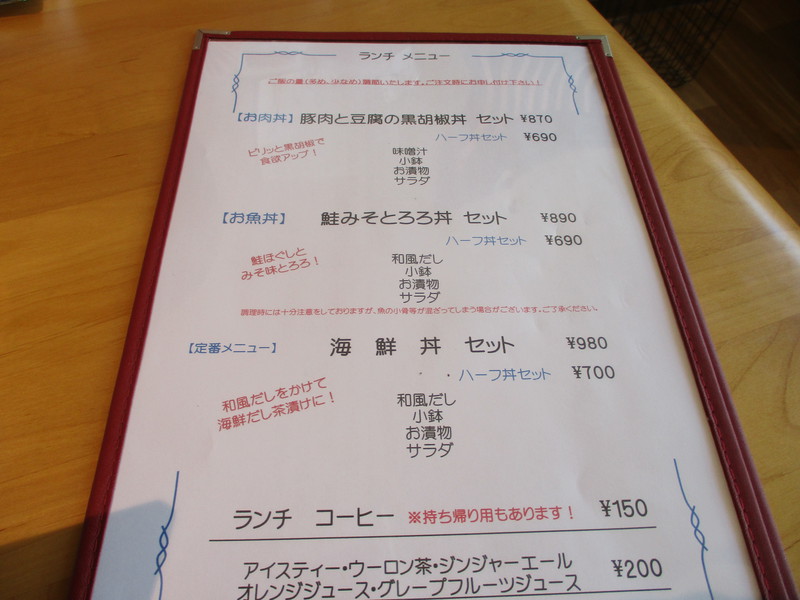 ランチ メニュー
ご飯の量(多め、少なめ)調節いたします。ご注文時にお申し付け下さい！
【お肉丼】 豚肉と豆腐の黒胡椒丼 セット ¥870
ハーフ丼セット ¥690
ピリッと黒胡椒で
食欲アップ！
味噌汁
小鉢
お漬物
サラダ
【お魚丼】 鮭みそとろろ丼 セット ¥890
ハーフ丼セット ¥690
鮭ほぐしと
みそ味とろろ！
和風だし
小鉢
お漬物
サラダ
調理時には十分注意をしておりますが、魚の小骨等が混ざってしまう場合がございます。ご了承ください。
【定番メニュー】 海 鮮 丼 セット ¥980
ハーフ丼セット ¥700
和風だしをかけて
海鮮だし茶漬けに！
和風だし
小鉢
お漬物
サラダ
ランチ コーヒー ※持ち帰り用もあります！ ¥150
アイスティー・ウーロン茶・ジンジャーエール ¥200
オレンジジュース・グレープフルーツジュース